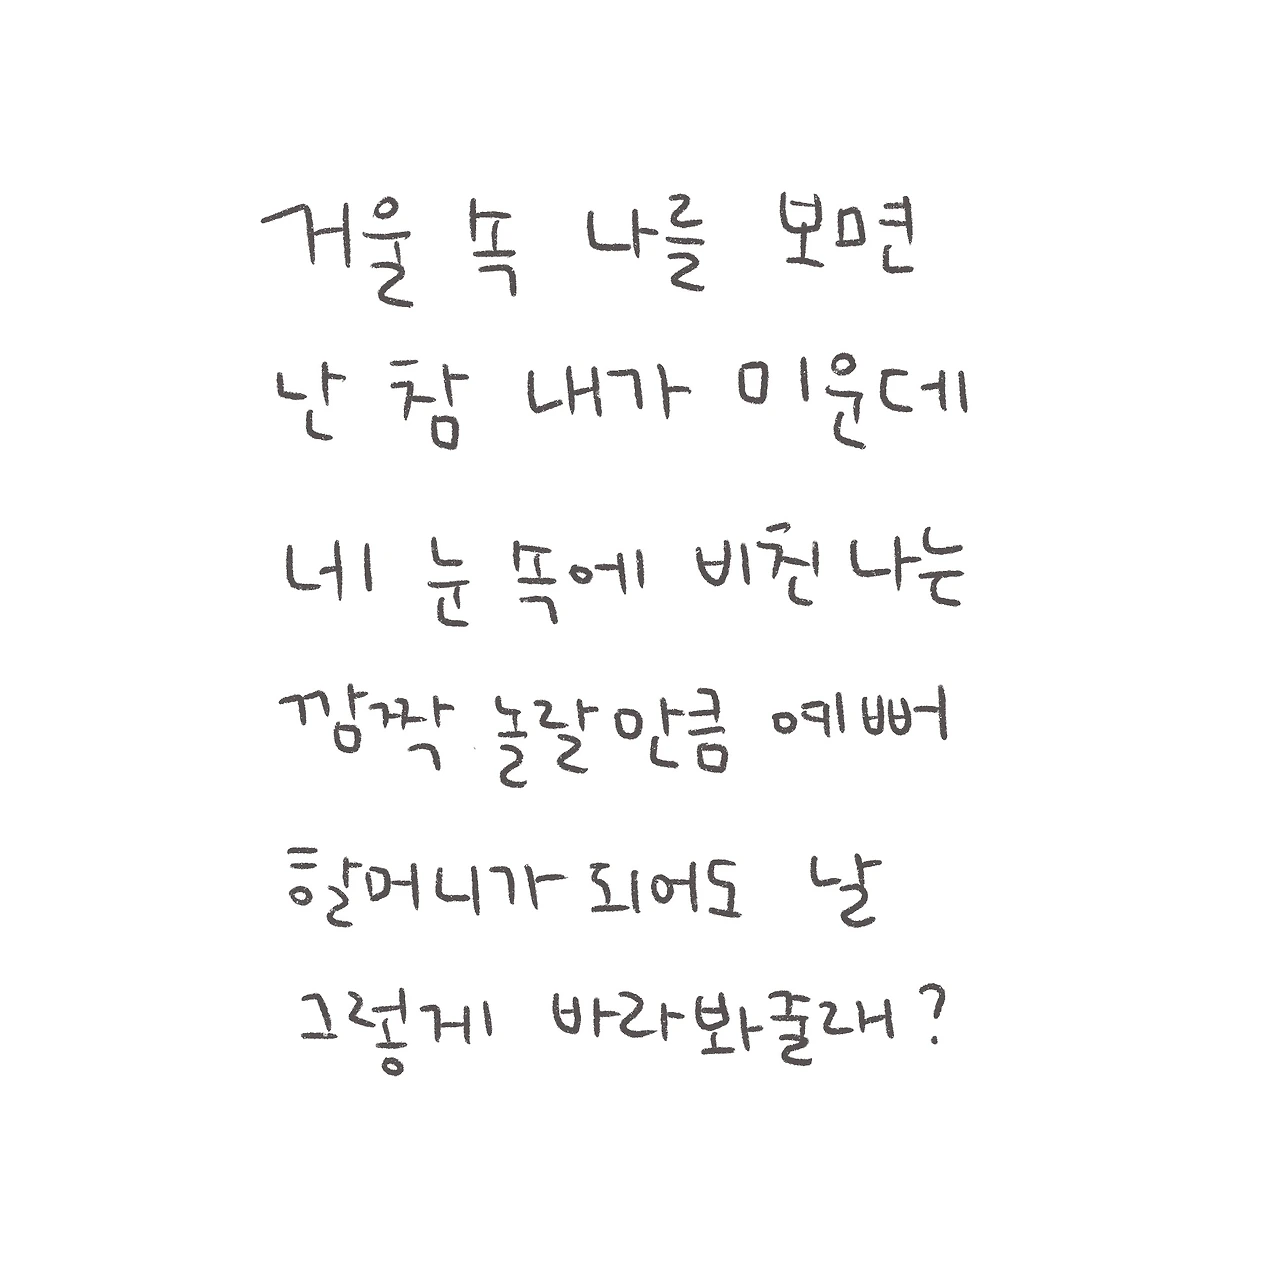 거울 속 나를 보면
난 참 내가 미운데
네 눈 속에 비친 나는
깜짝 놀랄 만큼 예뻐
할머니가 되어도 날
그렇게 바라봐줄래?